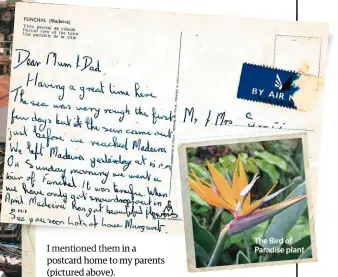 FUNCHAL (Madeira)
Vista parcial da cidade
Parcial view of the town
Une parcielle de la ville
Dear Mum & Dad.
Having a great time here
The sea was very rough the first
few days but the sun came out
just before we reached Madeira
We left Madeira yesterday at
On Sunday morning we went a
tour of Funchal. It was terrific. When
we have only got snowdrops out in
April Madeira has got beautiful flowers
See you soon lots of love Margaret.
BY AIR
Mr & Mrs
The Bird of
Paradise plant
I mentioned them in a
postcard home to my parents
(pictured above).